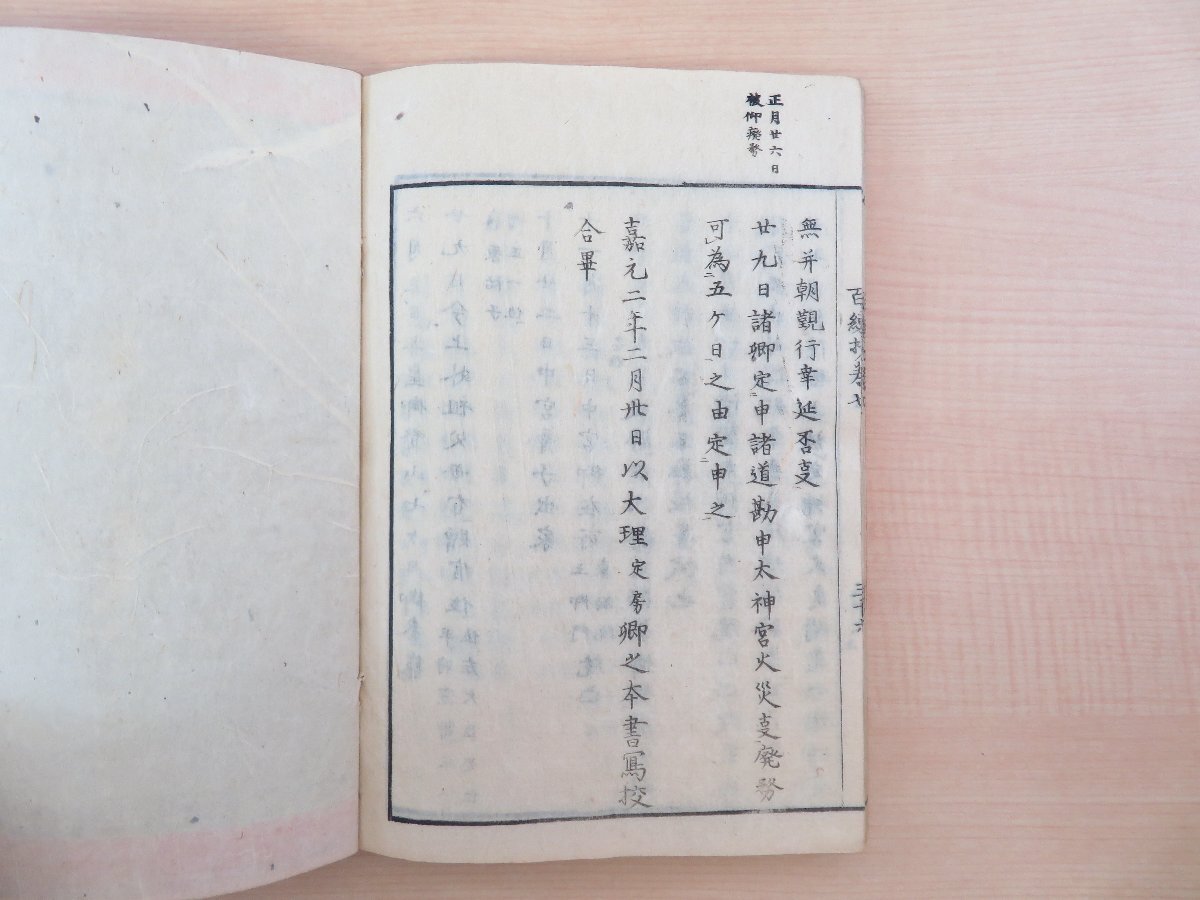 正月廿六日
被仰廃務
無并朝覲行幸延否叓
廿九日諸卿定申諸道勘申太神宮火災叓廃務
可為五ケ日之由定申之
嘉元二年二月卅日以大理定房卿之本書寫挍
合畢
百錬抄卷七
三十六